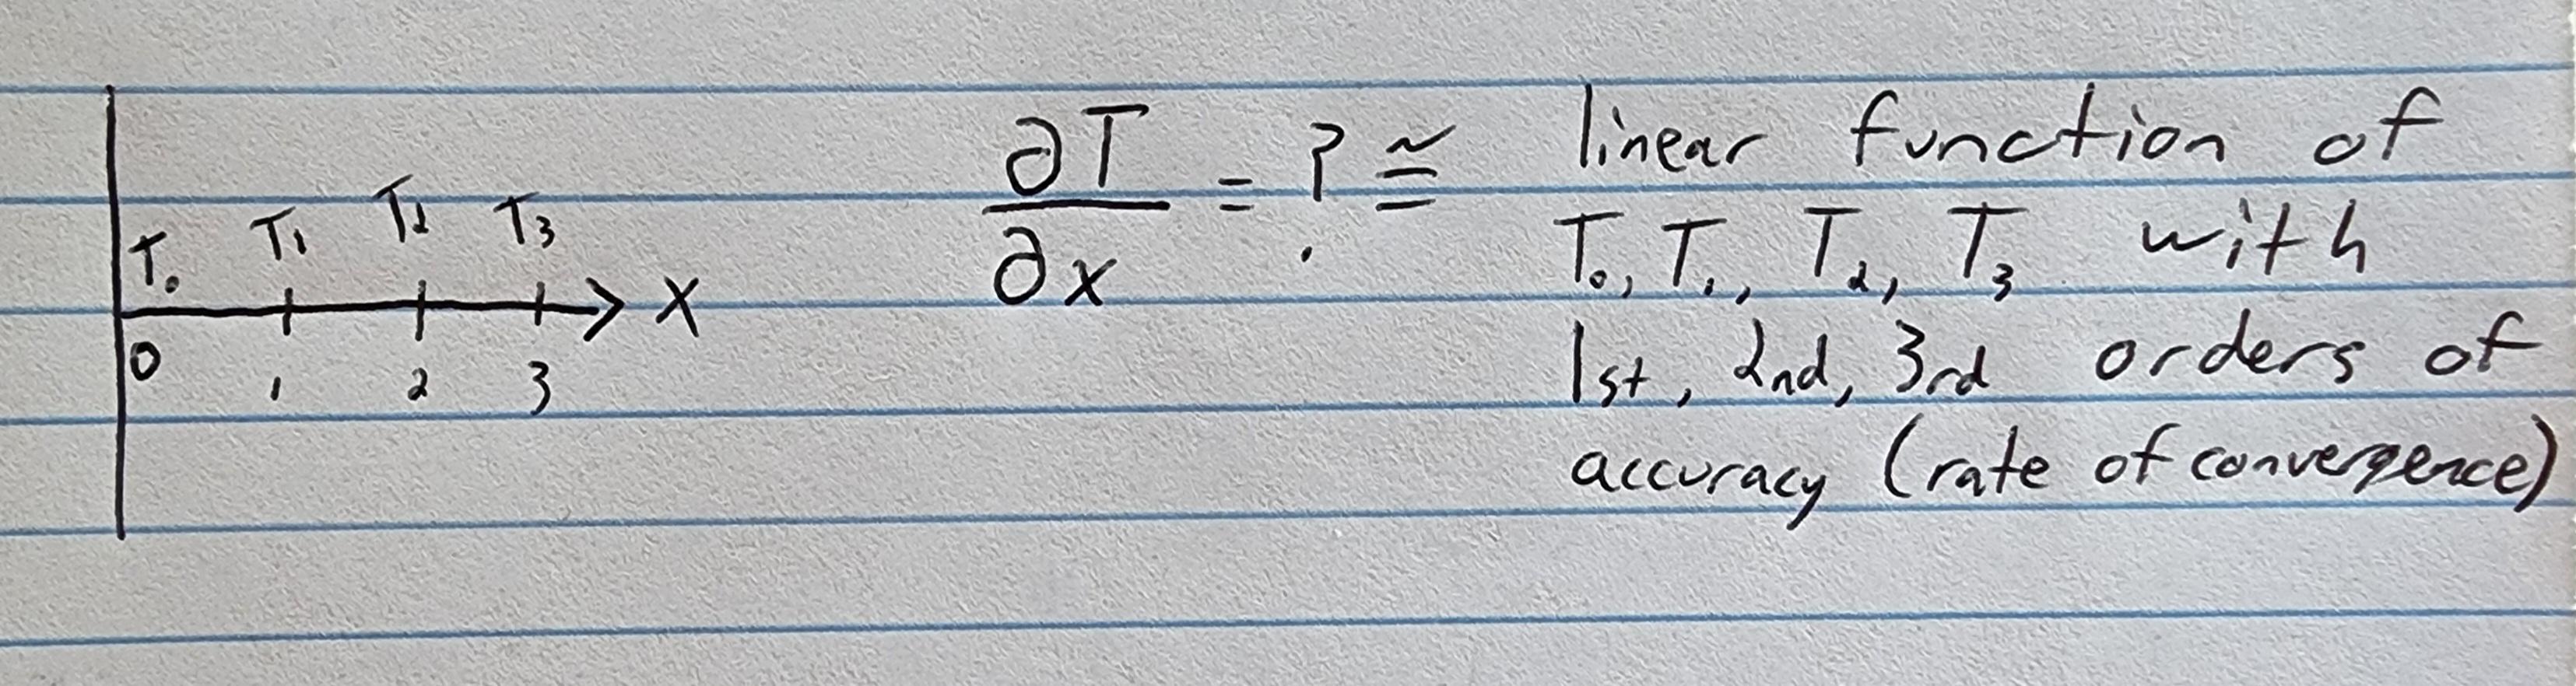 T₀ T₁ T₂ T₃
X
0 1 2 3
∂T/∂x = ? ≅ linear function of
T₀, T₁, T₂, T₃ with
1st, 2nd, 3rd orders of
accuracy (rate of convergence)